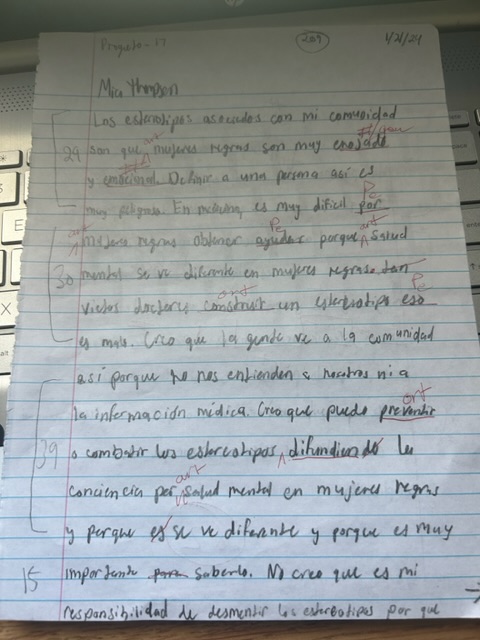 Proyecto - 17
209
1/21/24
Mica Thompson
Los estereotipos asociados con mi comunidad
29 son que mujeres negras son muy enojado
art
#/gen
y emocional. Definir a una persona así es
muy peligroso. En medicina, es muy difícil por
Pc
mujeres negras obtener ayudar porque salud
art
Pc
art
30 mental se ve diferente en mujeres negras
viejos doctores construir un estereotipo eso
ort
Pc
es malo. Creo que la gente ve a la comunidad
así porque no nos entienden a nosotros ni a
la información médica. Creo que puedo preventir
ort
39 o combatir los estereotipos difundiendo la
conciencia por salud mental en mujeres negras
art
y porque es se ve diferente y porque es muy
15 importante para saberlo. No creo que es mi
responsibilidad de desmentir los estereotipos por que